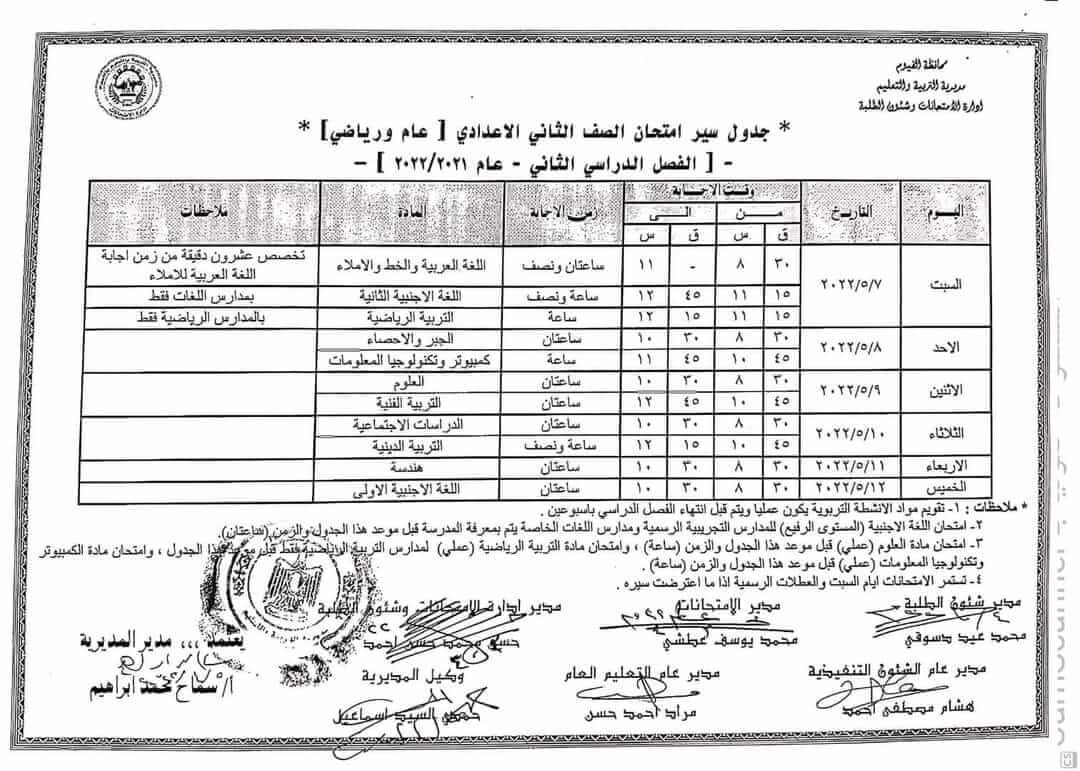 محافظة الفيوم
مديرية التربية والتعليم
ادارة الامتحانات وشئون الطلبة
* جدول سير امتحان الصف الثاني الاعدادي [ عام ورياضي ] *
- [ الفصل الدراسي الثاني - عام ٢٠٢٢/٢٠٢١ ] -
اليوم التاريخ وقت الاجابة زمن الاجابة المادة ملاحظات
من الى
ق س ق س
السبت ٢٠٢٢/٥/٧ ٣٠ ٨ - ١١ ساعتان ونصف اللغة العربية والخط والاملاء تخصص عشرون دقيقة من زمن اجابة اللغة العربية للاملاء
١٥ ١١ ٤٥ ١٢ ساعة ونصف اللغة الاجنبية الثانية بمدارس اللغات فقط
١٥ ١١ ١٥ ١٢ ساعة التربية الرياضية بالمدارس الرياضية فقط
الاحد ٢٠٢٢/٥/٨ ٣٠ ٨ ٣٠ ١٠ ساعتان الجبر والاحصاء
٤٥ ١٠ ٤٥ ١١ ساعة كمبيوتر وتكنولوجيا المعلومات
الاثنين ٢٠٢٢/٥/٩ ٣٠ ٨ ٣٠ ١٠ ساعتان العلوم
٤٥ ١٠ ٤٥ ١٢ ساعتان التربية الفنية
الثلاثاء ٢٠٢٢/٥/١٠ ٣٠ ٨ ٣٠ ١٠ ساعتان الدراسات الاجتماعية
٤٥ ١٠ ١٥ ١٢ ساعة ونصف التربية الدينية
الاربعاء ٢٠٢٢/٥/١١ ٣٠ ٨ ٣٠ ١٠ ساعتان هندسة
الخميس ٢٠٢٢/٥/١٢ ٣٠ ٨ ٣٠ ١٠ ساعتان اللغة الاجنبية الاولى
* ملاحظات : ١- تقويم مواد الانشطة التربوية يكون عمليا ويتم قبل انتهاء الفصل الدراسي باسبوعين .
٢- امتحان اللغة الاجنبية (المستوى الرفيع) للمدارس التجريبية الرسمية ومدارس اللغات الخاصة يتم بمعرفة المدرسة قبل موعد هذا الجدول والزمن (ساعتان).
٣- امتحان مادة العلوم (عملي) قبل موعد هذا الجدول والزمن (ساعة) ، وامتحان مادة التربية الرياضية (عملي) لمدارس التربية الرياضية فقط قبل موعد هذا الجدول ، وامتحان مادة الكمبيوتر
وتكنولوجيا المعلومات (عملي) قبل موعد هذا الجدول والزمن (ساعة) .
٤ - تستمر الامتحانات ايام السبت والعطلات الرسمية اذا ما اعترضت سيره .
مدير شئون الطلبة مدير الامتحانات مدير ادارة الامتحانات وشئون الطلبة
محمد عيد دسوقي محمد يوسف عطشي محمد حسن احمد
يعتمد ,,, مدير المديرية
أ/ سماح محمد ابراهيم
مدير عام الشئون التنفيذية مدير عام التعليم العام وكيل المديرية
هشام مصطفى احمد مراد احمد حسن حمدي السيد اسماعيل
CS